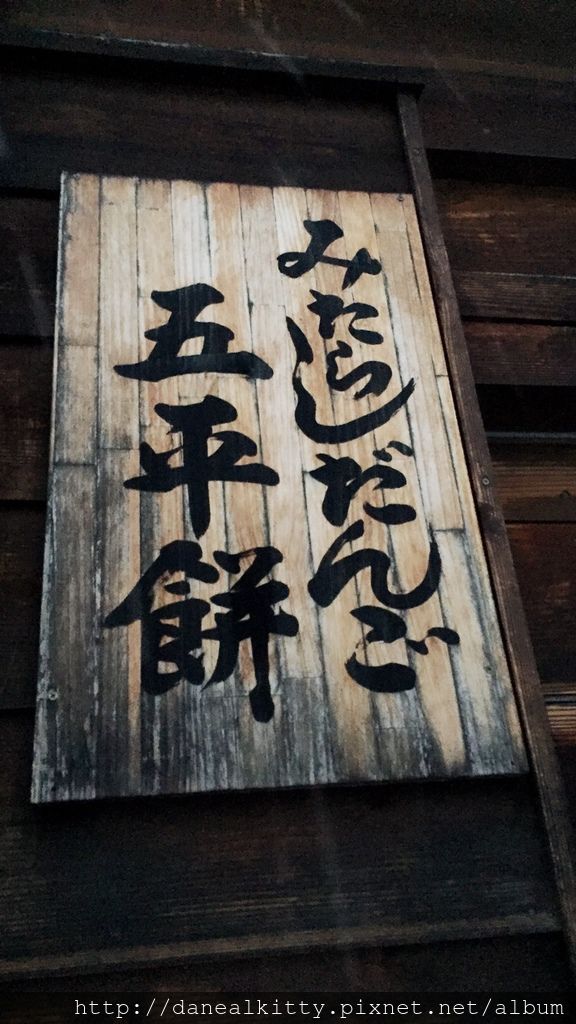 みたらしだんご
五平餅
http://danealkitty.pixnet.net/album